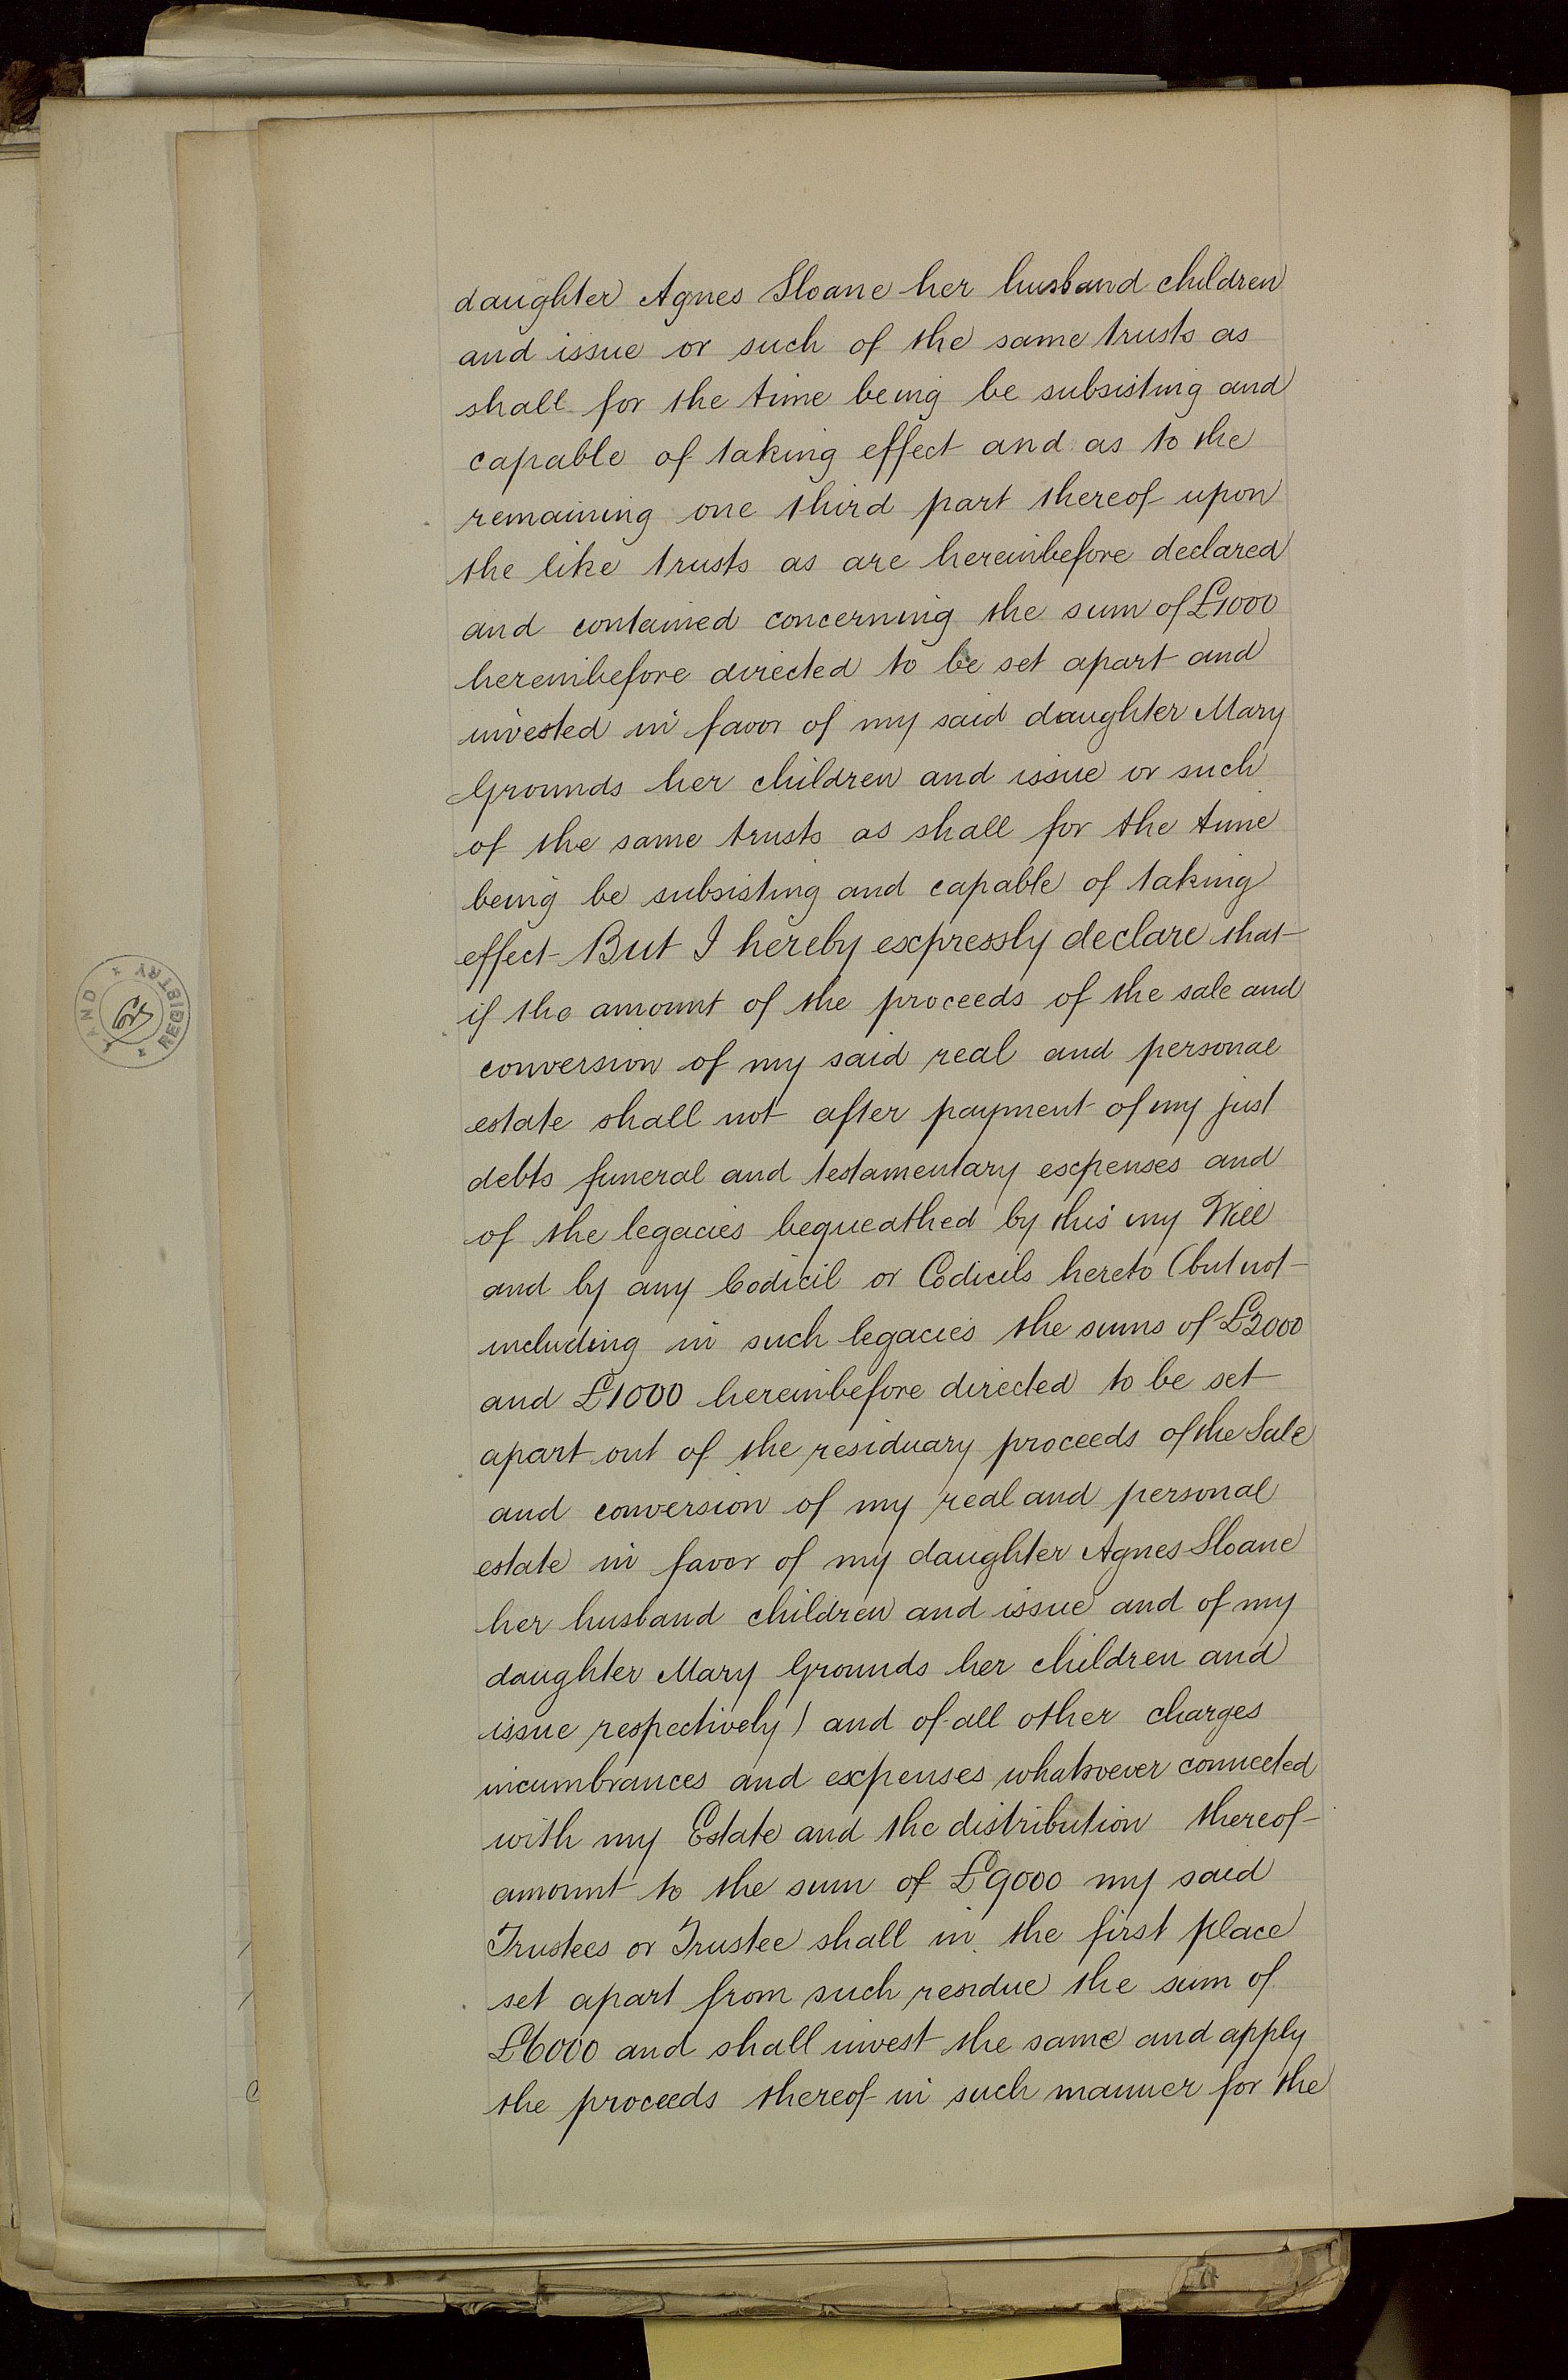 daughter Agnes Sloane her husband children
and issue or such of the same trusts as
shall for the time being be subsisting and
capable of taking effect and as to the
remaining one third part thereof upon
the like trusts as are hereinbefore declared
and contained concerning the sum of £1000
hereinbefore directed to be set apart and
invested in favor of my said daughter Mary
Grounds her children and issue or such
of the same trusts as shall for the time
being be subsisting and capable of taking
effect But I hereby expressly declare that
if the amount of the proceeds of the sale and
conversion of my said real and personal
estate shall not after payment of my just
debts funeral and testamentary expenses and
of the legacies bequeathed by this my Will
and by any Codicil or Codicils hereto (but not
including in such legacies the sums of £2000
and £1000 hereinbefore directed to be set
apart out of the residuary proceeds of the Sale
and conversion of my real and personal
estate in favor of my daughter Agnes Sloane
her husband children and issue and of my
daughter Mary Grounds her children and
issue respectively) and of all other charges
incumbrances and expenses whatsoever connected
with my Estate and the distribution thereof
amount to the sum of £9000 my said
Trustees or Trustee shall in the first place
set apart from such residue the sum of
£6000 and shall invest the same and apply
the proceeds thereof in such manner for the
LAND REGISTRY